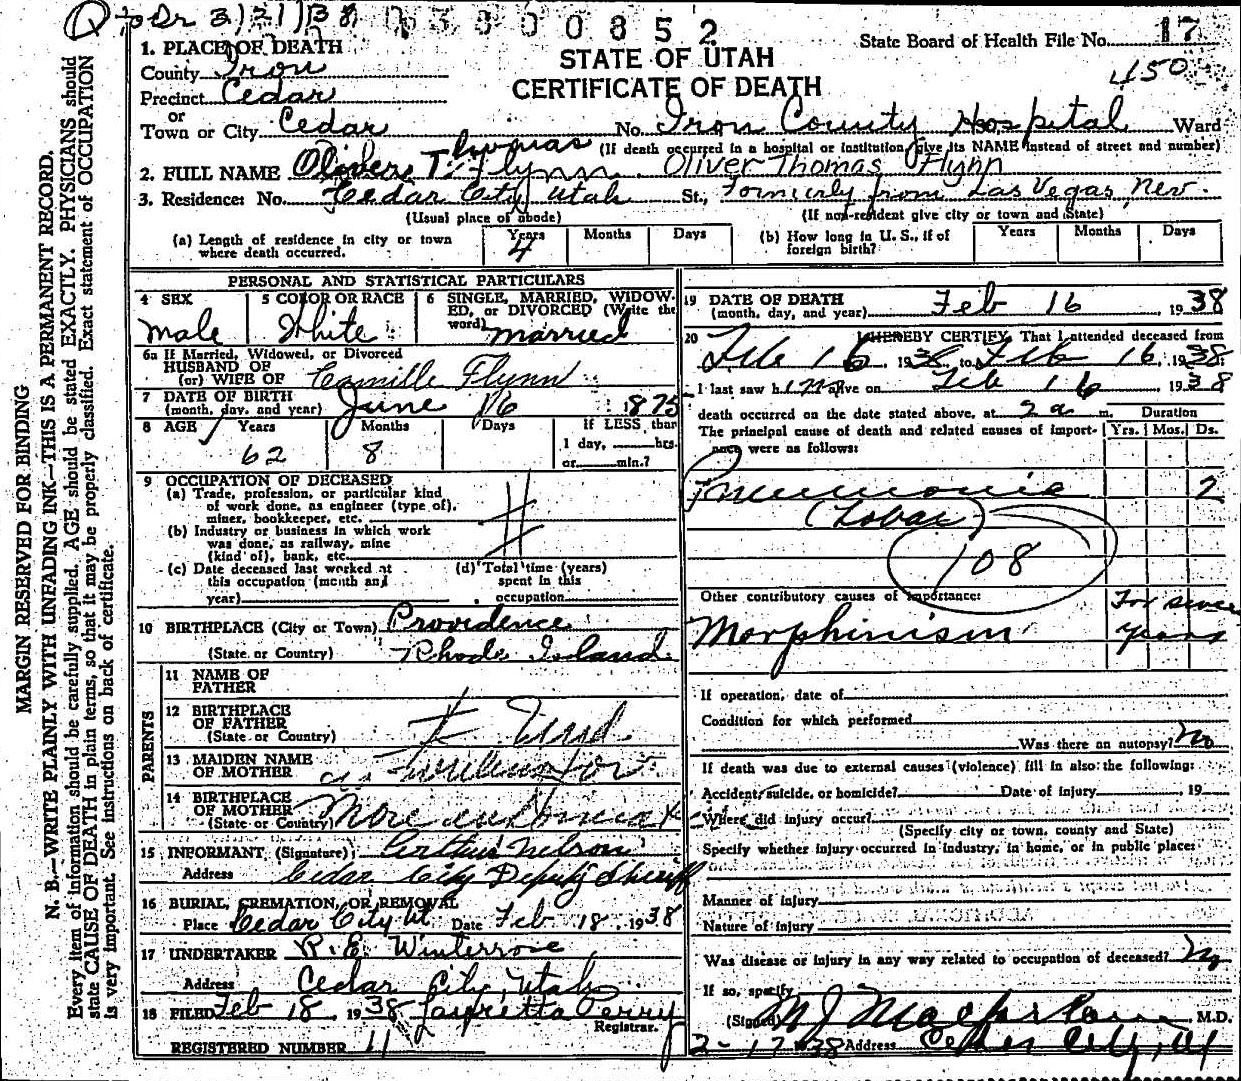 3/21/38 3800852
1. PLACE OF DEATH
STATE OF UTAH
CERTIFICATE OF DEATH
State Board of Health File No. 17
450
County Iron
Precinct Cedar
or
Town or City Cedar No. Iron County Hospital Ward
(If death occurred in a hospital or institution, give its NAME instead of street and number)
2. FULL NAME Oliver T. Thomas Flynn Oliver Thomas Flynn
3. Residence: No. Cedar City, Utah St., Formerly from Las Vegas, Nev.
(Usual place of abode) (If non-resident give city or town and State)
(a) Length of residence in city or town where death occurred. Years 4 Months Days
(b) How long in U. S., if of foreign birth? Years Months Days
PERSONAL AND STATISTICAL PARTICULARS
4 SEX Male
5 COLOR OR RACE White
6 SINGLE, MARRIED, WIDOWED, or DIVORCED (Write the word) Married
6a If Married, Widowed, or Divorced
HUSBAND OF
(or) WIFE OF Camille Flynn
7 DATE OF BIRTH
(month, day, and year) June 16 1875
8 AGE Years 62 Months 8 Days If LESS than 1 day, hrs. or min.?
9 OCCUPATION OF DECEASED
(a) Trade, profession, or particular kind
of work done, as engineer (type of),
miner, bookkeeper, etc.
(b) Industry or business in which work
was done, as railway, mine
(kind of), bank, etc.
(c) Date deceased last worked at
this occupation (month and
year)
(d) Total time (years)
spent in this
occupation
10 BIRTHPLACE (City or Town) Providence
(State or Country) Rhode Island
PARENTS
11 NAME OF
FATHER
12 BIRTHPLACE
OF FATHER
(State or Country)
13 MAIDEN NAME
OF MOTHER
14 BIRTHPLACE
OF MOTHER
(State or Country) More
15 INFORMANT (Signature) Arthur Nelson
Address Cedar City Deputy Sheriff
16 BURIAL, CREMATION, OR REMOVAL
Place Cedar City Ut Date Feb 18, 1938
17 UNDERTAKER R. E. Winterrose
Address Cedar City, Utah
18 FILED Feb 18 1938 Perry
Registrar.
REGISTERED NUMBER 11
19 DATE OF DEATH
(month, day, and year) Feb 16, 1938
20 I HEREBY CERTIFY, That I attended deceased from
Feb 16, 1938, to Feb 16, 1938
I last saw him alive on Feb 16 1938
death occurred on the date stated above, at 2 a m. Duration
The principal cause of death and related causes of importance were as follows: Yrs. Mos. Ds.
Pneumonia 2
(Lobar)
108
Other contributory causes of importance: For
Morphinism years
If operation, date of
Condition for which performed
Was there an autopsy? No
If death was due to external causes (violence) fill in also the following:
Accident, suicide, or homicide? Date of injury 19
Where did injury occur?
(Specify city or town, county and State)
Specify whether injury occurred in industry, in home, or in public place:
Manner of injury
Nature of injury
Was disease or injury in any way related to occupation of deceased? No
If so, specify
(Signed) M J Macfarlane, M.D.
2-17-1938 Address Cedar City, Ut
MARGIN RESERVED FOR BINDING
N. B.—WRITE PLAINLY WITH UNFADING INK—THIS IS A PERMANENT RECORD.
Every item of information should be carefully supplied. AGE should be stated EXACTLY. PHYSICIANS should
state CAUSE OF DEATH in plain terms, so that it may be properly classified. Exact statement of OCCUPATION
is very important. See instructions on back of certificate.